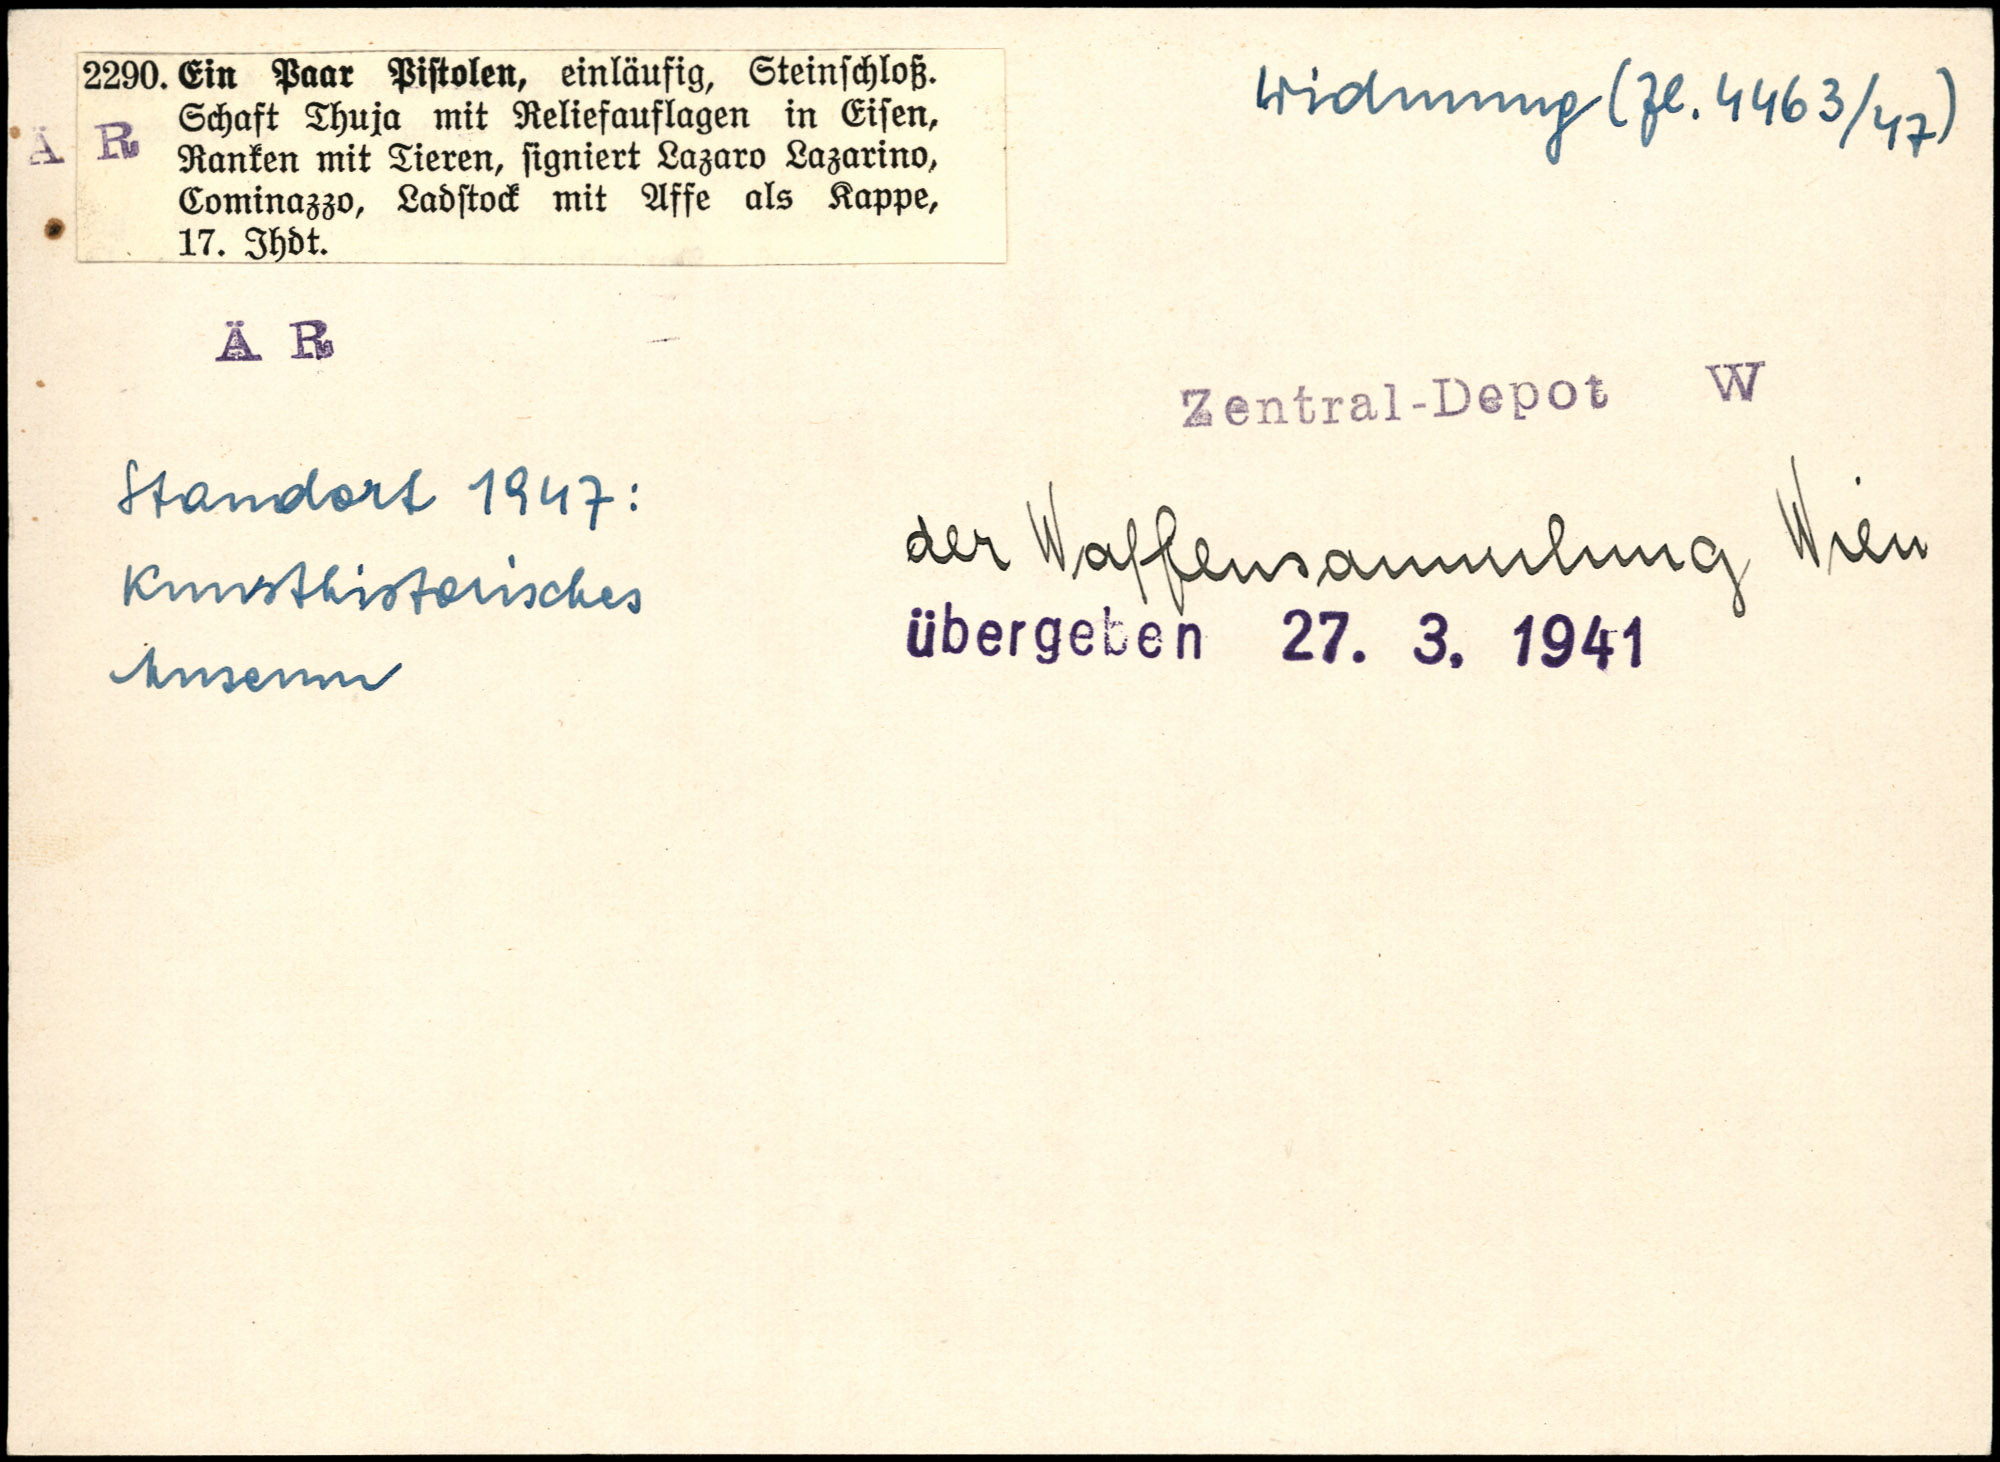 2290. Ein Paar Pistolen, einläufig, Steinschloß.
Schaft Thuja mit Reliefauflagen in Eisen,
Ranken mit Tieren, signiert Lazaro Lazarino,
Cominazzo, Ladstock mit Affe als Kappe,
17. Jhdt.
Ä R
Widmung (Zl. 4463/47)
Ä R
Zentral-Depot W
Standort 1947:
Kunsthistorisches
Museum
der Waffensammlung Wien
übergeben 27. 3. 1941